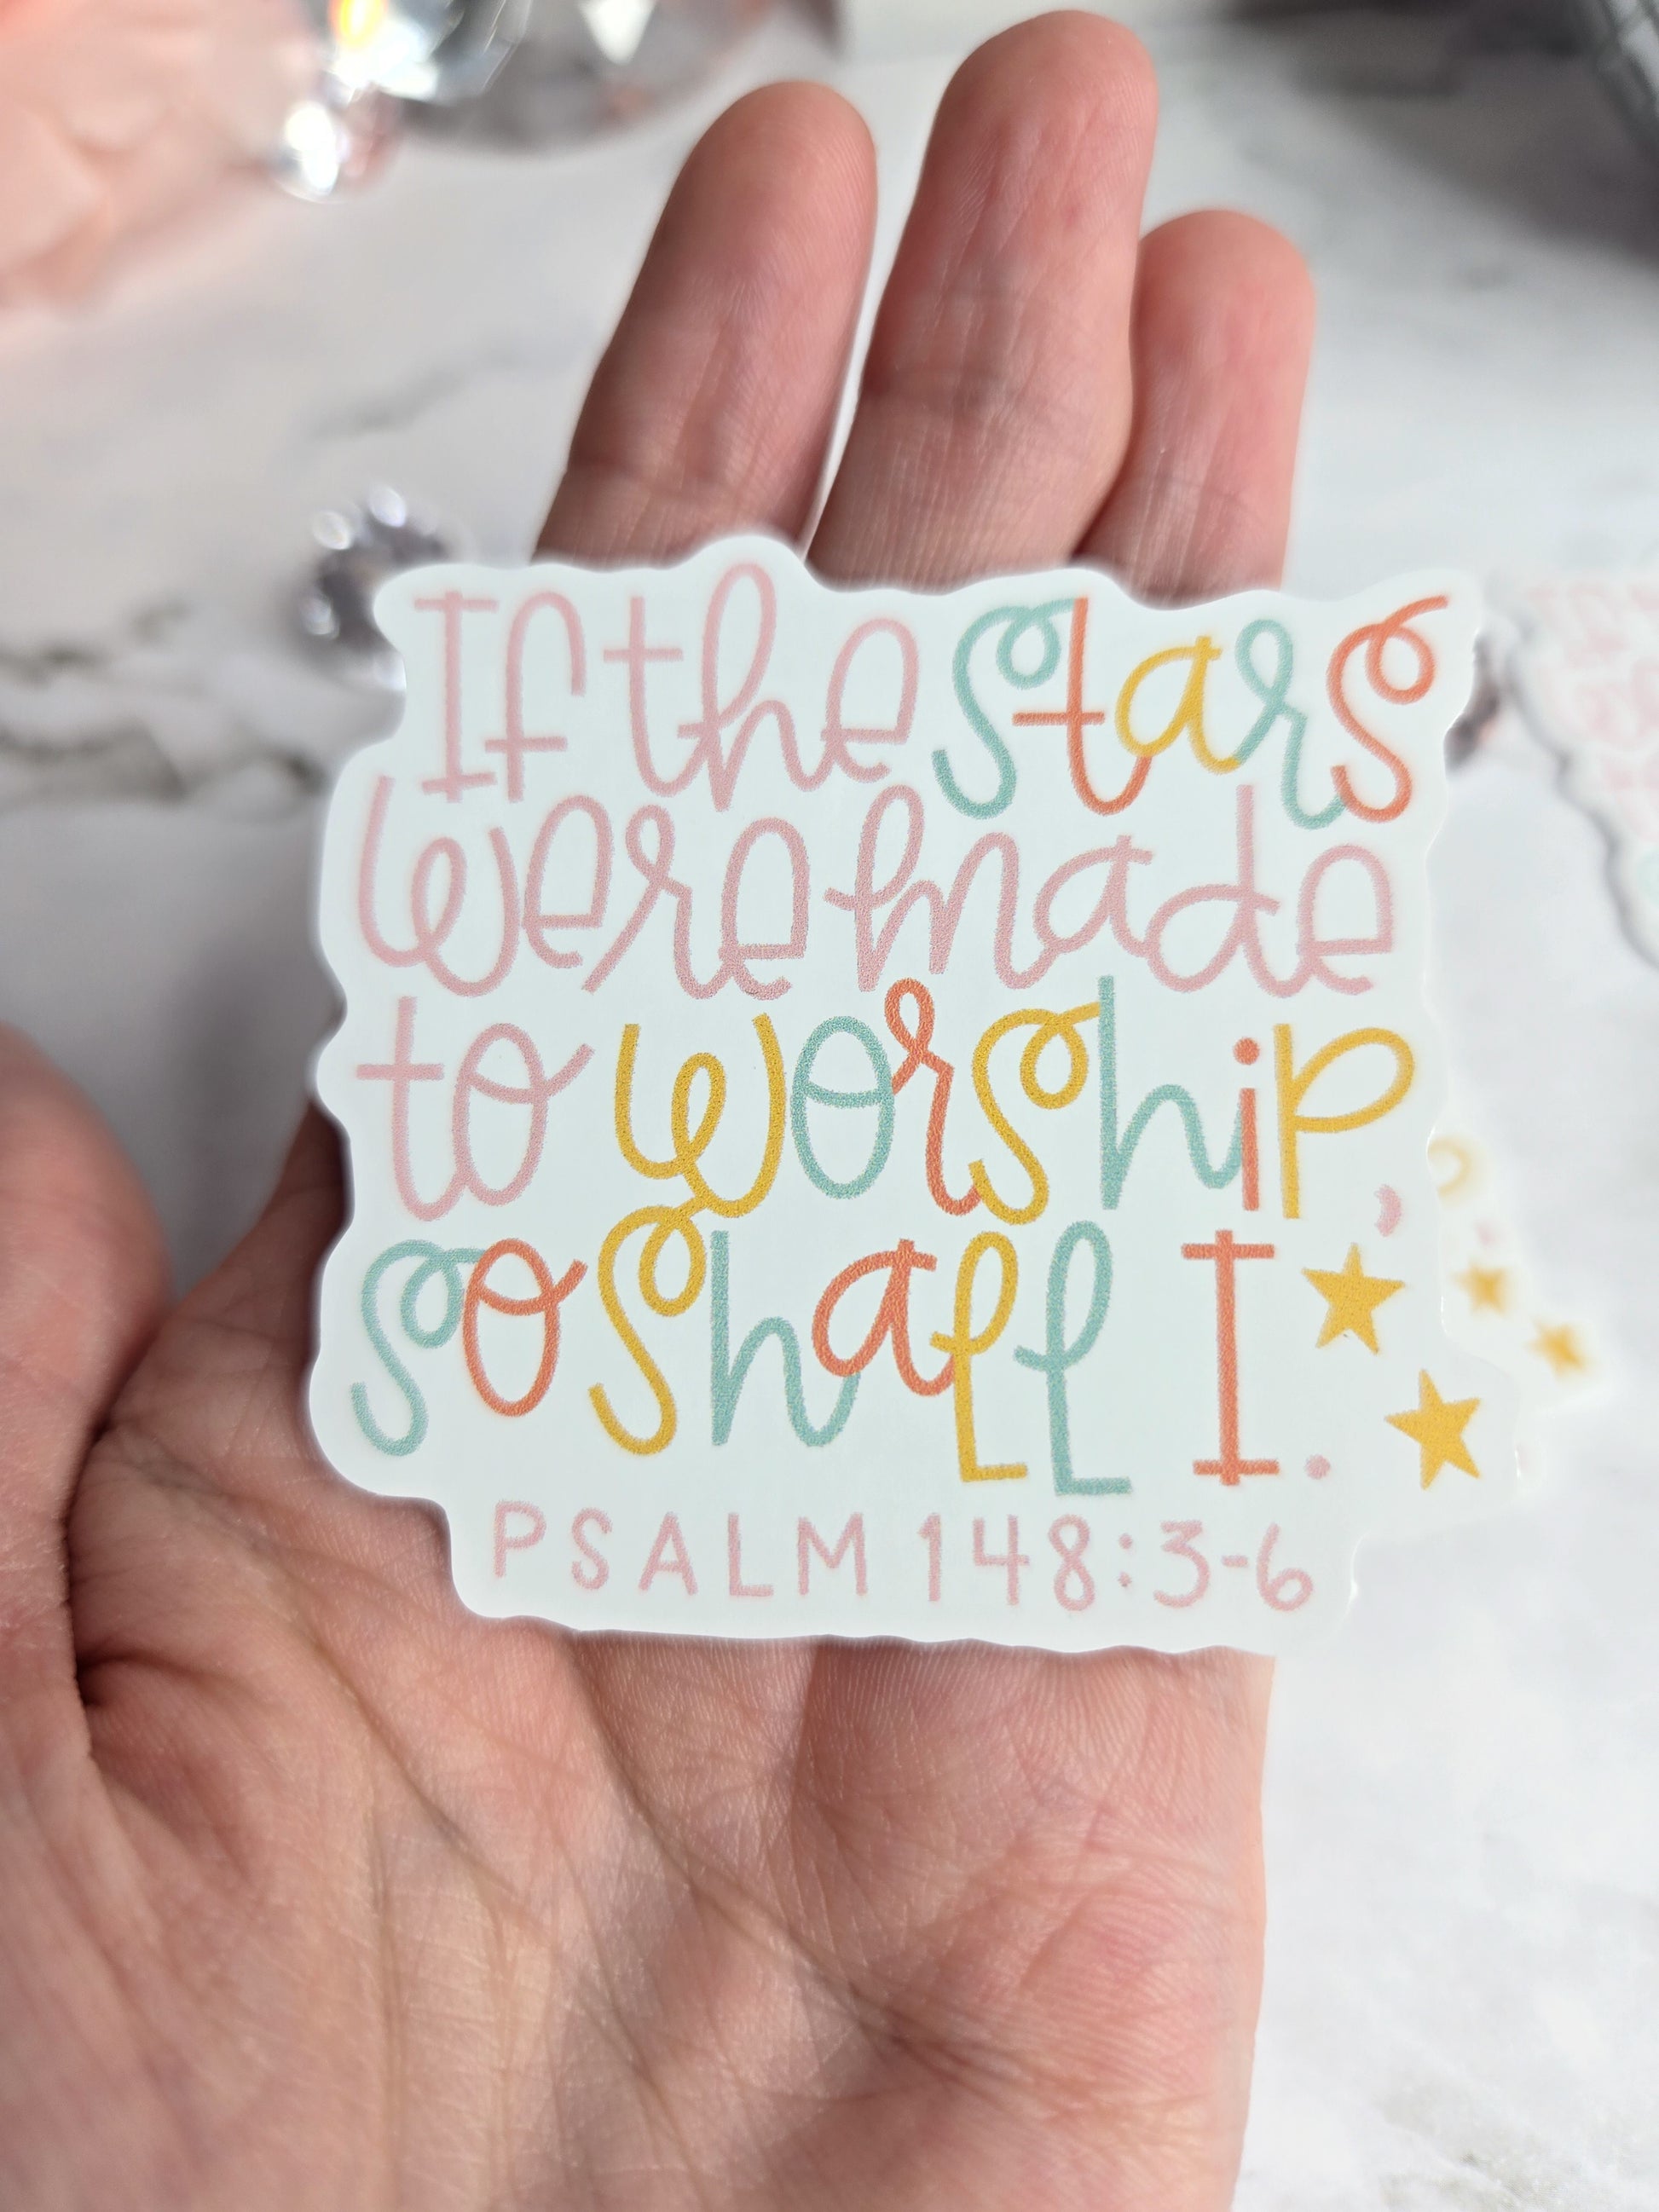 If the stars
were made
to worship,
so shall I.
PSALM 148:3-6